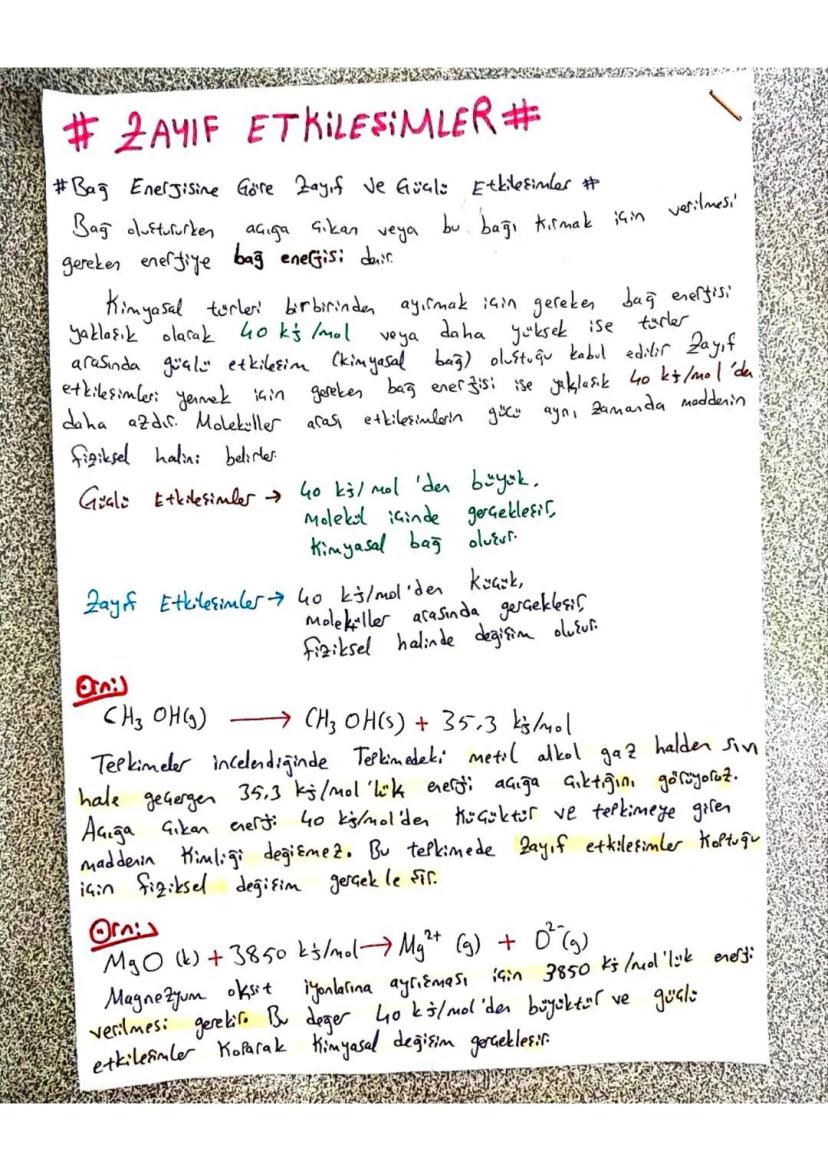 # ZAYIF ETKİLEŞİMLER #
# Bağ Enerjisine Göre Zayıf ve Güçlü Etkileşimler #
Bağ oluştururken açığa çıkan veya bu bağı kırmak için verilmesi
gereken enerjiye bağ enerjisi denir.
Kimyasal türleri birbirinden ayırmak için gereken bağ enerjisi
yaklaşık olarak 40 kj/mol veya daha yüksek ise türler
arasında güçlü etkileşim (kimyasal bağ) oluştuğu kabul edilir Zayıf
etkileşimleri yenmek için gereken bağ enerjisi ise yaklaşık 40 kj/mol'den
daha azdır. Moleküller arası etkileşimlerin gücü aynı zamanda maddenin
fiziksel halini belirler.
Güçlü Etkileşimler → 40 kj/mol 'den büyük,
Molekül içinde gerçekleşir,
Kimyasal bağ oluşur.
Zayıf Etkileşimler → 40 kj/mol'den küçük,
Moleküller arasında gerçekleşir,
fiziksel halinde değişim oluşur.
Örn:
CH3 OH(g) → CH3 OH(s) + 35.3 kj/mol
Tepkimeler incelendiğinde Tepkimedeki metil alkol gaz halden sıvı
hale geçerçen 35,3 kj/mol'lük enerji açığa çıktığını görüyoruz.
Açığa çıkan enerji 40 kj/mol'den küçüktür ve tepkimeye giren
maddenin kimliği değişmez. Bu tepkimede zayıf etkileşimler koptuğu
için fiziksel değişim gerçekleşir.
Örn:
MgO (k) + 3850 kj/mol → Mg2+ (g) + O2- (g)
Magnezyum oksit iyonlarına ayrışması için 3850 kj/mol'lük enerji
verilmesi gerekir. Bu değer 40 kj/mol'den büyüktür ve güçlü
etkileşimler koparak kimyasal değişim gerçekleşir.